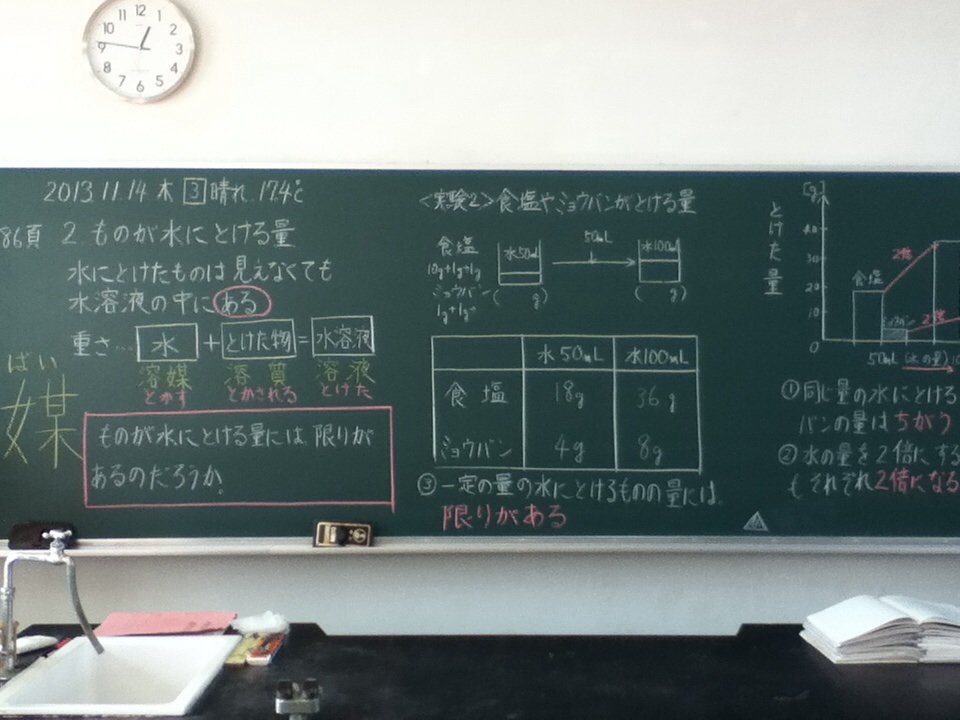 12
1
2
3
4
5
6
7
8
9
10
11
2013.11.14 木 3 晴れ 17.4℃
86頁 2. ものが水にとける量
水にとけたものは見えなくても
水溶液の中にある
重さ… 水 + とけた物 = 水溶液
溶媒 溶質 溶液
とかす とかされる とけた
ばい
媒
ものが水にとける量には、限りが
あるのだろうか。
<実験2>食塩やミョウバンがとける量
食塩
10g+1g+1g
ミョウバン
1g+1g
水50mL 50mL 水100mL
( g) ( g)
水50mL 水100mL
食塩 18g 36g
ミョウバン 4g 8g
③ 一定の量の水にとけるものの量には、
限りがある
[g]
とけた量
40
30
20
10
0
食塩
ミョウバン
2倍
2倍
50mL (水の量)
① 同じ量の水にとける
バンの量はちがう
② 水の量を2倍にする
もそれぞれ2倍になる